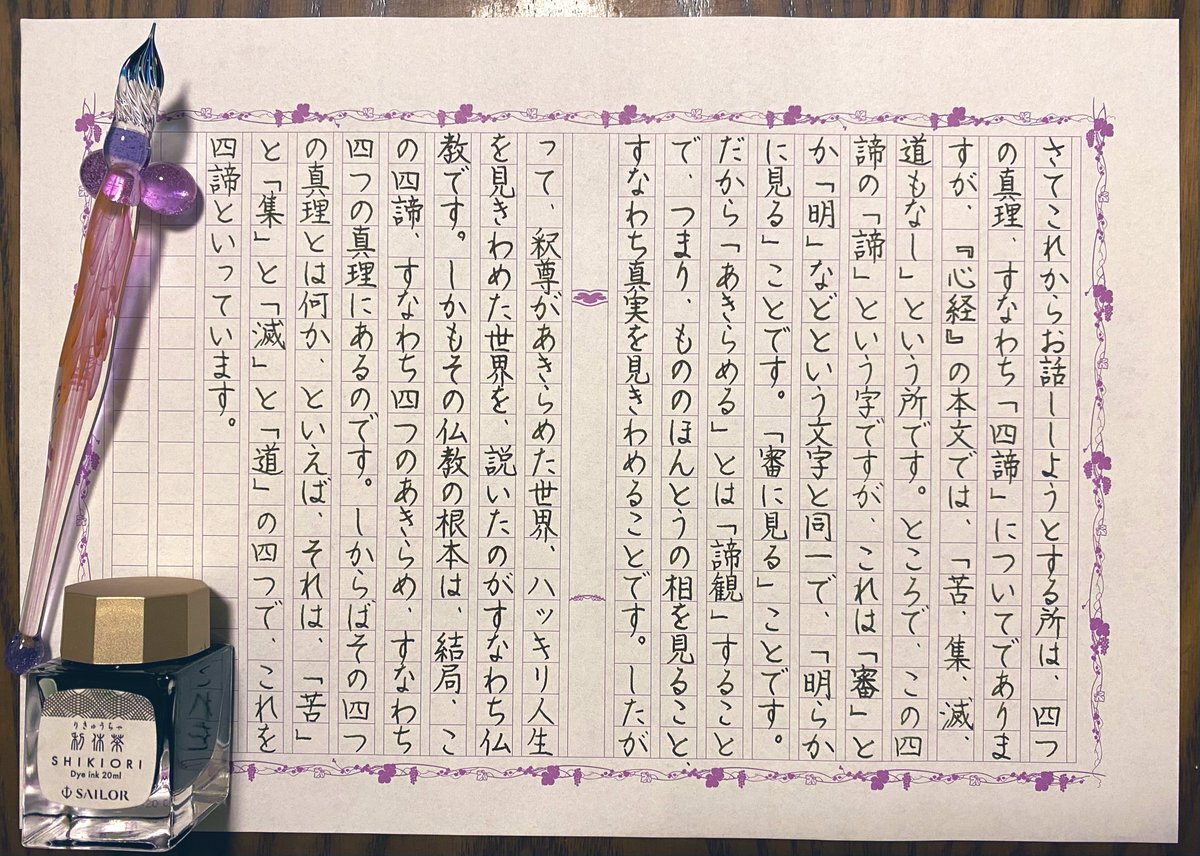 さてこれからお話ししようとする所は、四つ
の真理、すなわち「四諦」についてでありま
すが、『心経』の本文では、「苦、集、滅
道もなし」という所です。ところで、この四
諦の「諦」という字ですが、これは「審」と
か「明」などという文字と同一で、「明らか
に見る」ことです。「審に見る」ことです。
だから「あきらめる」とは「諦観」すること
で、つまり、もののほんとうの相を見ること、
すなわち真実を見きわめることです。したが
って、釈尊があきらめた世界、ハッキリ人生
を見きわめた世界を、説いたのがすなわち仏
教です。しかもその仏教の根本は、結局、こ
の四諦、すなわち四つのあきらめ、すなわち
四つの真理にあるのです。しからばその四つ
の真理とは何か、といえば、それは、「苦」
と「集」と「滅」と「道」の四つで、これを
四諦といっています。
りきゅうちゃ
利休茶
SHIKIORI
Dye ink 20ml
SAILOR